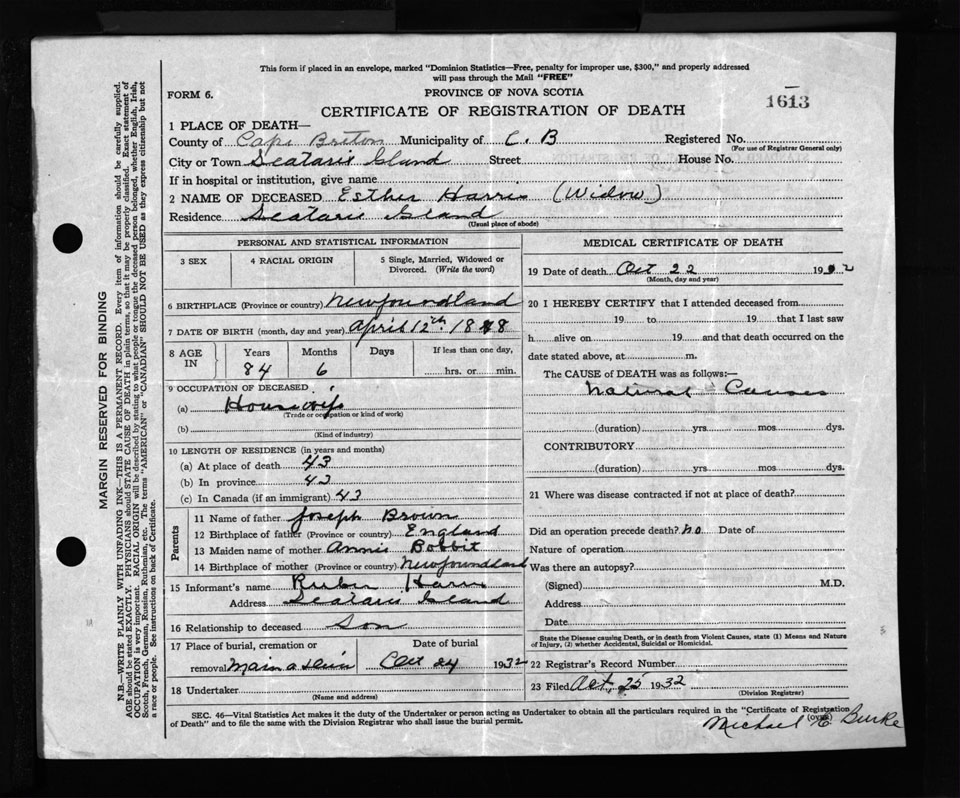 This form if placed in an envelope, marked "Dominion Statistics—Free, penalty for improper use, $300," and properly addressed
will pass through the Mail "FREE"
FORM 6.
PROVINCE OF NOVA SCOTIA
CERTIFICATE OF REGISTRATION OF DEATH
1613
1 PLACE OF DEATH—
County of Cape Breton Municipality of C. B Registered No.
(For use of Registrar General only)
City or Town Scatarie Island Street House No.
If in hospital or institution, give name
2 NAME OF DECEASED Esther Harris (Widow)
Residence Scatarie Island
(Usual place of abode)
PERSONAL AND STATISTICAL INFORMATION
3 SEX 4 RACIAL ORIGIN 5 Single, Married, Widowed or
Divorced. (Write the word)
6 BIRTHPLACE (Province or country) Newfoundland
7 DATE OF BIRTH (month, day and year) April 12th 1848
8 AGE IN Years Months Days If less than one day,
84 6 hrs. or min.
9 OCCUPATION OF DECEASED
(a) Housewife
(Trade or occupation or kind of work)
(b)
(Kind of industry)
10 LENGTH OF RESIDENCE (in years and months)
(a) At place of death 43
(b) In province 43
(c) In Canada (if an immigrant) 43
Parents
11 Name of father Joseph Brown
12 Birthplace of father (Province or country) England
13 Maiden name of mother Annie Bobbit
14 Birthplace of mother (Province or country) Newfoundland
15 Informant's name Ruben Harris
Address Scatarie Island
16 Relationship to deceased Son
17 Place of burial, cremation or Date of burial
removal Main a Dieu Oct 24 1932
18 Undertaker
(Name and address)
MEDICAL CERTIFICATE OF DEATH
19 Date of death Oct 22 1932
(Month, day and year)
20 I HEREBY CERTIFY that I attended deceased from
19 to 19 that I last saw
h alive on 19 and that death occurred on the
date stated above, at m.
The CAUSE of DEATH was as follows:—
Natural Causes
(duration) yrs. mos. dys.
CONTRIBUTORY
(duration) yrs. mos dys.
21 Where was disease contracted if not at place of death?
Did an operation precede death? no Date of
Nature of operation
Was there an autopsy?
(Signed) M.D.
Address
Date
State the Disease causing Death, or in death from Violent Causes, state (1) Means and Nature
of Injury, (2) whether Accidental, Suicidal or Homicidal.
22 Registrar's Record Number
23 Filed Oct, 25 1932
(Division Registrar)
SEC. 46—Vital Statistics Act makes it the duty of the Undertaker or person acting as Undertaker to obtain all the particulars required in the "Certificate of Registration
of Death" and to file the same with the Division Registrar who shall issue the burial permit.
(over)
Michael Burke
MARGIN RESERVED FOR BINDING
N.B.—WRITE PLAINLY WITH UNFADING INK—THIS IS A PERMANENT RECORD. Every item of information should be carefully supplied.
AGE should be stated EXACTLY. PHYSICIANS should STATE CAUSE OF DEATH in plain terms, so that it may be properly classified. Exact statement of
OCCUPATION is very important. RACIAL ORIGIN will be described by stating to what people or tongue the deceased person belonged, whether English, Irish,
Scotch, French, German, Russian, Ruthenian, etc. The terms "AMERICAN" or "CANADIAN" SHOULD NOT BE USED as they express citizenship but not
a race or people. See instructions on back of Certificate.